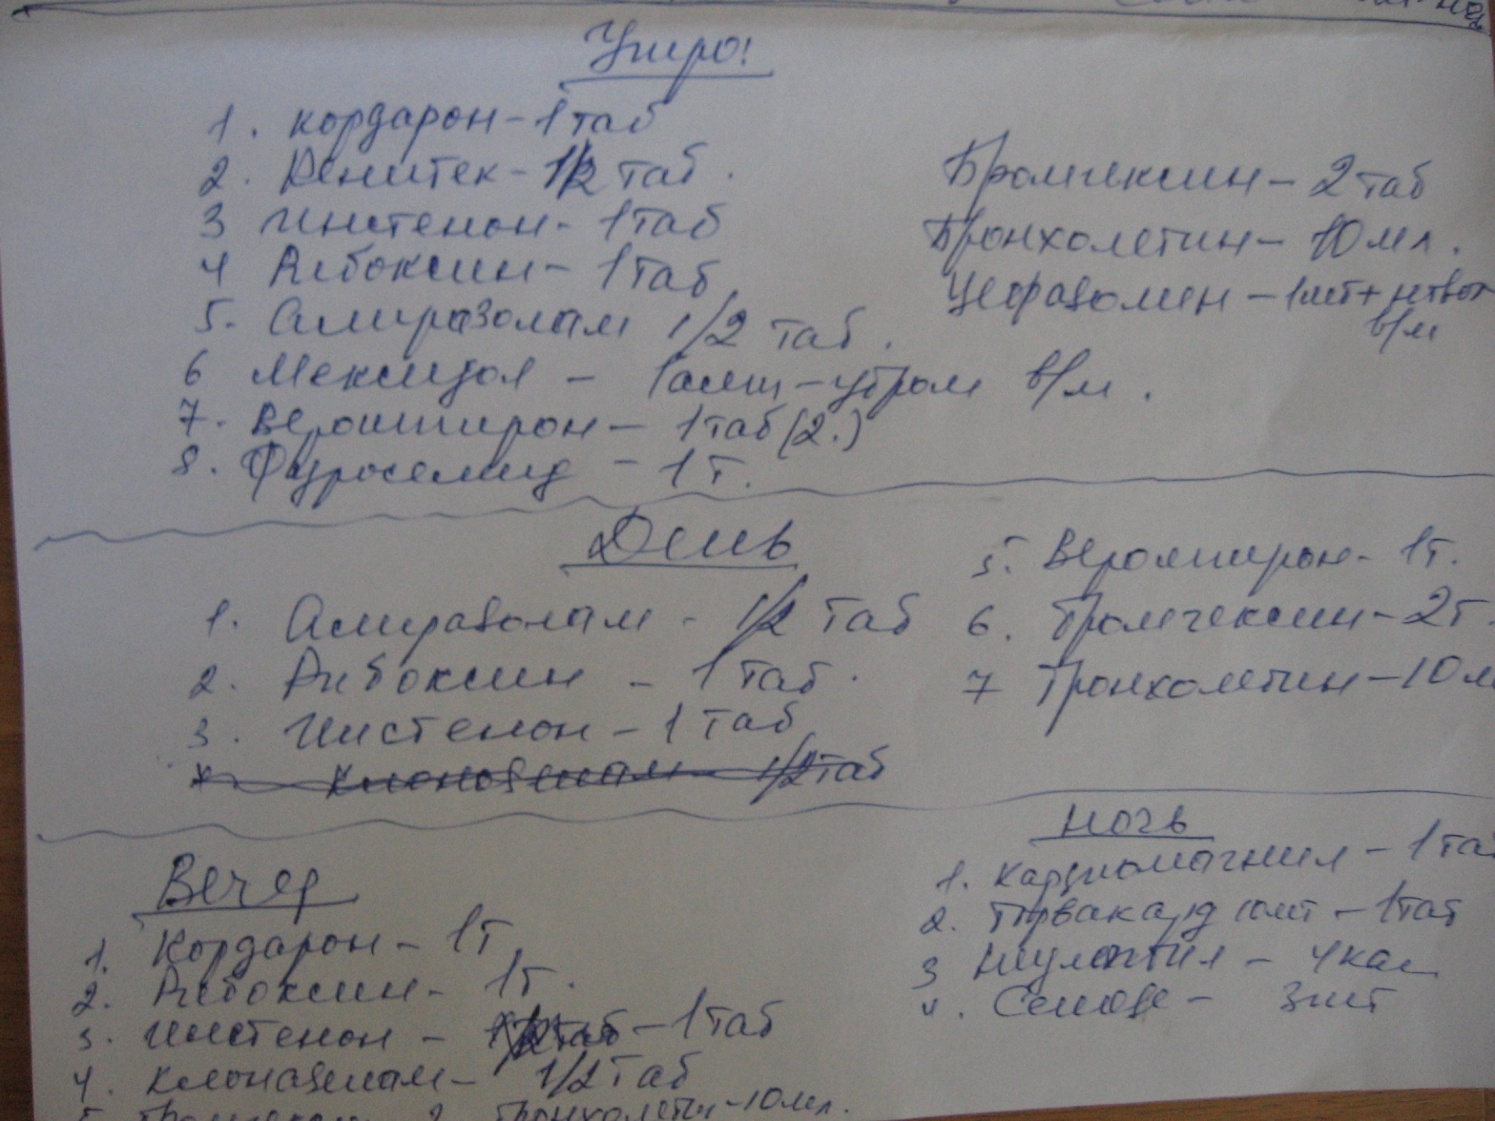 Утро!
1. кордарон - 1 таб
2. Ренитек - 1/2 таб.
3 инстенон - 1 таб
4 Рибоксин - 1 таб
5. Алпразолам 1/2 таб.
6 Мексидол - 1 амп - утром в/м.
7. Верошпирон - 1 таб (2.)
8. Фуросемид - 1 т.
Бромгексин - 2 таб
Бронхолетин - 10 мл.
Цефазолин - 1
в/м
День
1. Алпразолам - 1/2 таб
2. Рибоксин - 1 таб.
3. Инстенон - 1 таб
клоназепам 1/2 таб
5. Верошпирон - 1 т.
6. Бромгексин - 2 т.
7 Бронхолетин - 10 м
Вечер
1. Кордарон - 1 т
2. Рибоксин - 1 т.
3. инстенон - 1 таб
4. клоназепам - 1/2 таб
5. Бромгексин 2 Бронхолетин - 10 мл.
Ночь
1. Кардиомагнил - 1 таб
2. - 1 таб
3 Неулептил - 4 кап
4. Сенаде - 3 шт